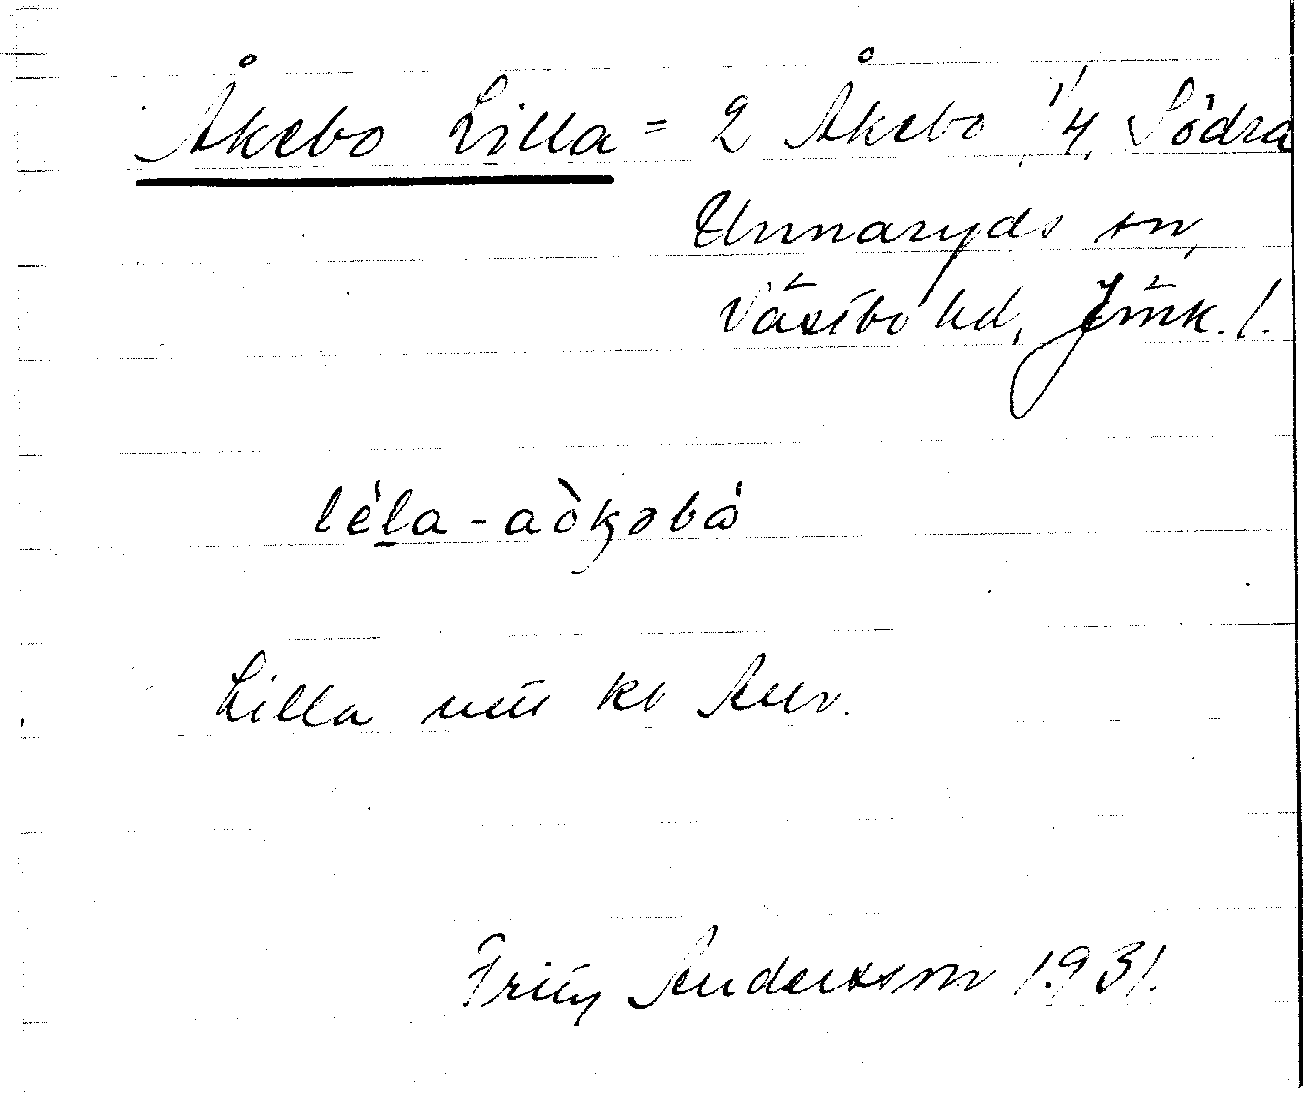 Åkebo Lilla = 2 Åkebo 1/4, Södra
Unnaryds sn,
Västbo hd, Jönk. l.
lèla - aòkəbå
Lilla
Fritz Andersson 1931.